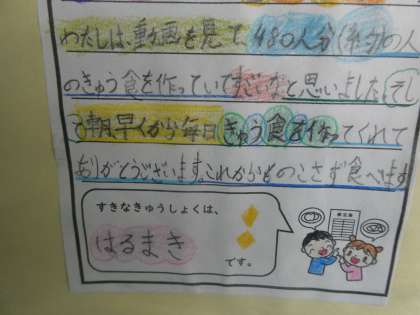 わたしは、動画を見て480人分(約)の人
のきゅう食を作っていてすごいなと思いました。そし
て朝早くから毎日きゅう食を作ってくれて
ありがとうございます。これからものこさず食べます
すきなきゅうしょくは、
はるまき
です。